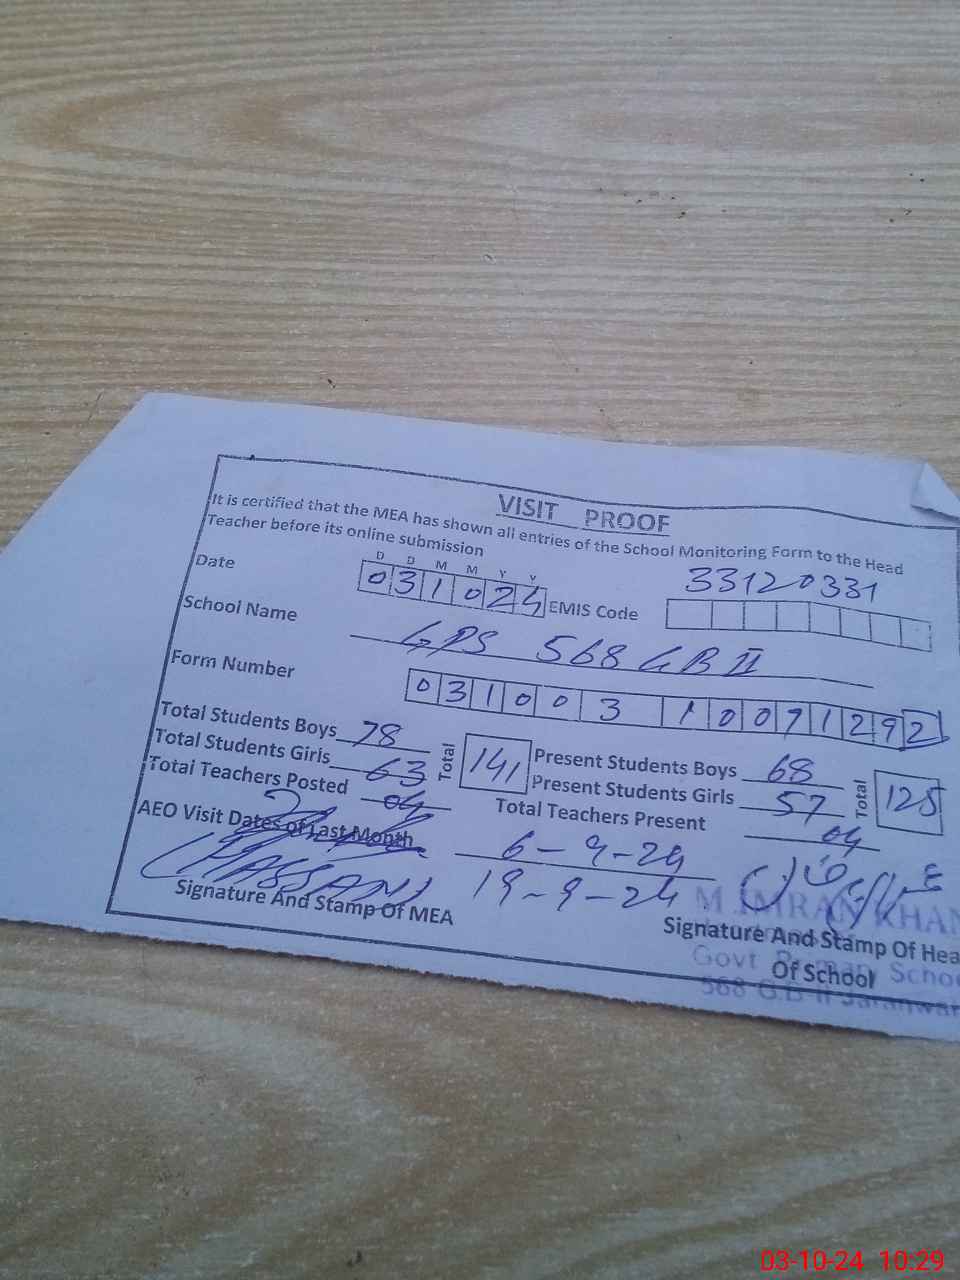 VISIT PROOF
It is certified that the MEA has shown all entries of the School Monitoring Form to the Head
Teacher before its online submission
D D M M Y Y
33120331
Date 031024 EMIS Code
School Name GPS 568 GB II
Form Number 03100310071292
Total Students Boys 78 Total 141 Present Students Boys 68 Total 125
Total Students Girls 63 Present Students Girls 57
Total Teachers Posted 04 Total Teachers Present 04
AEO Visit Dates of Last Month 6-9-24
19-9-24
HASSAN
Signature And Stamp Of MEA
M.IMRAN KHAN
Signature And Stamp Of Hea
Of School
Govt Primary Schoo
568 G.B-II Jaranwa
03-10-24 10:29